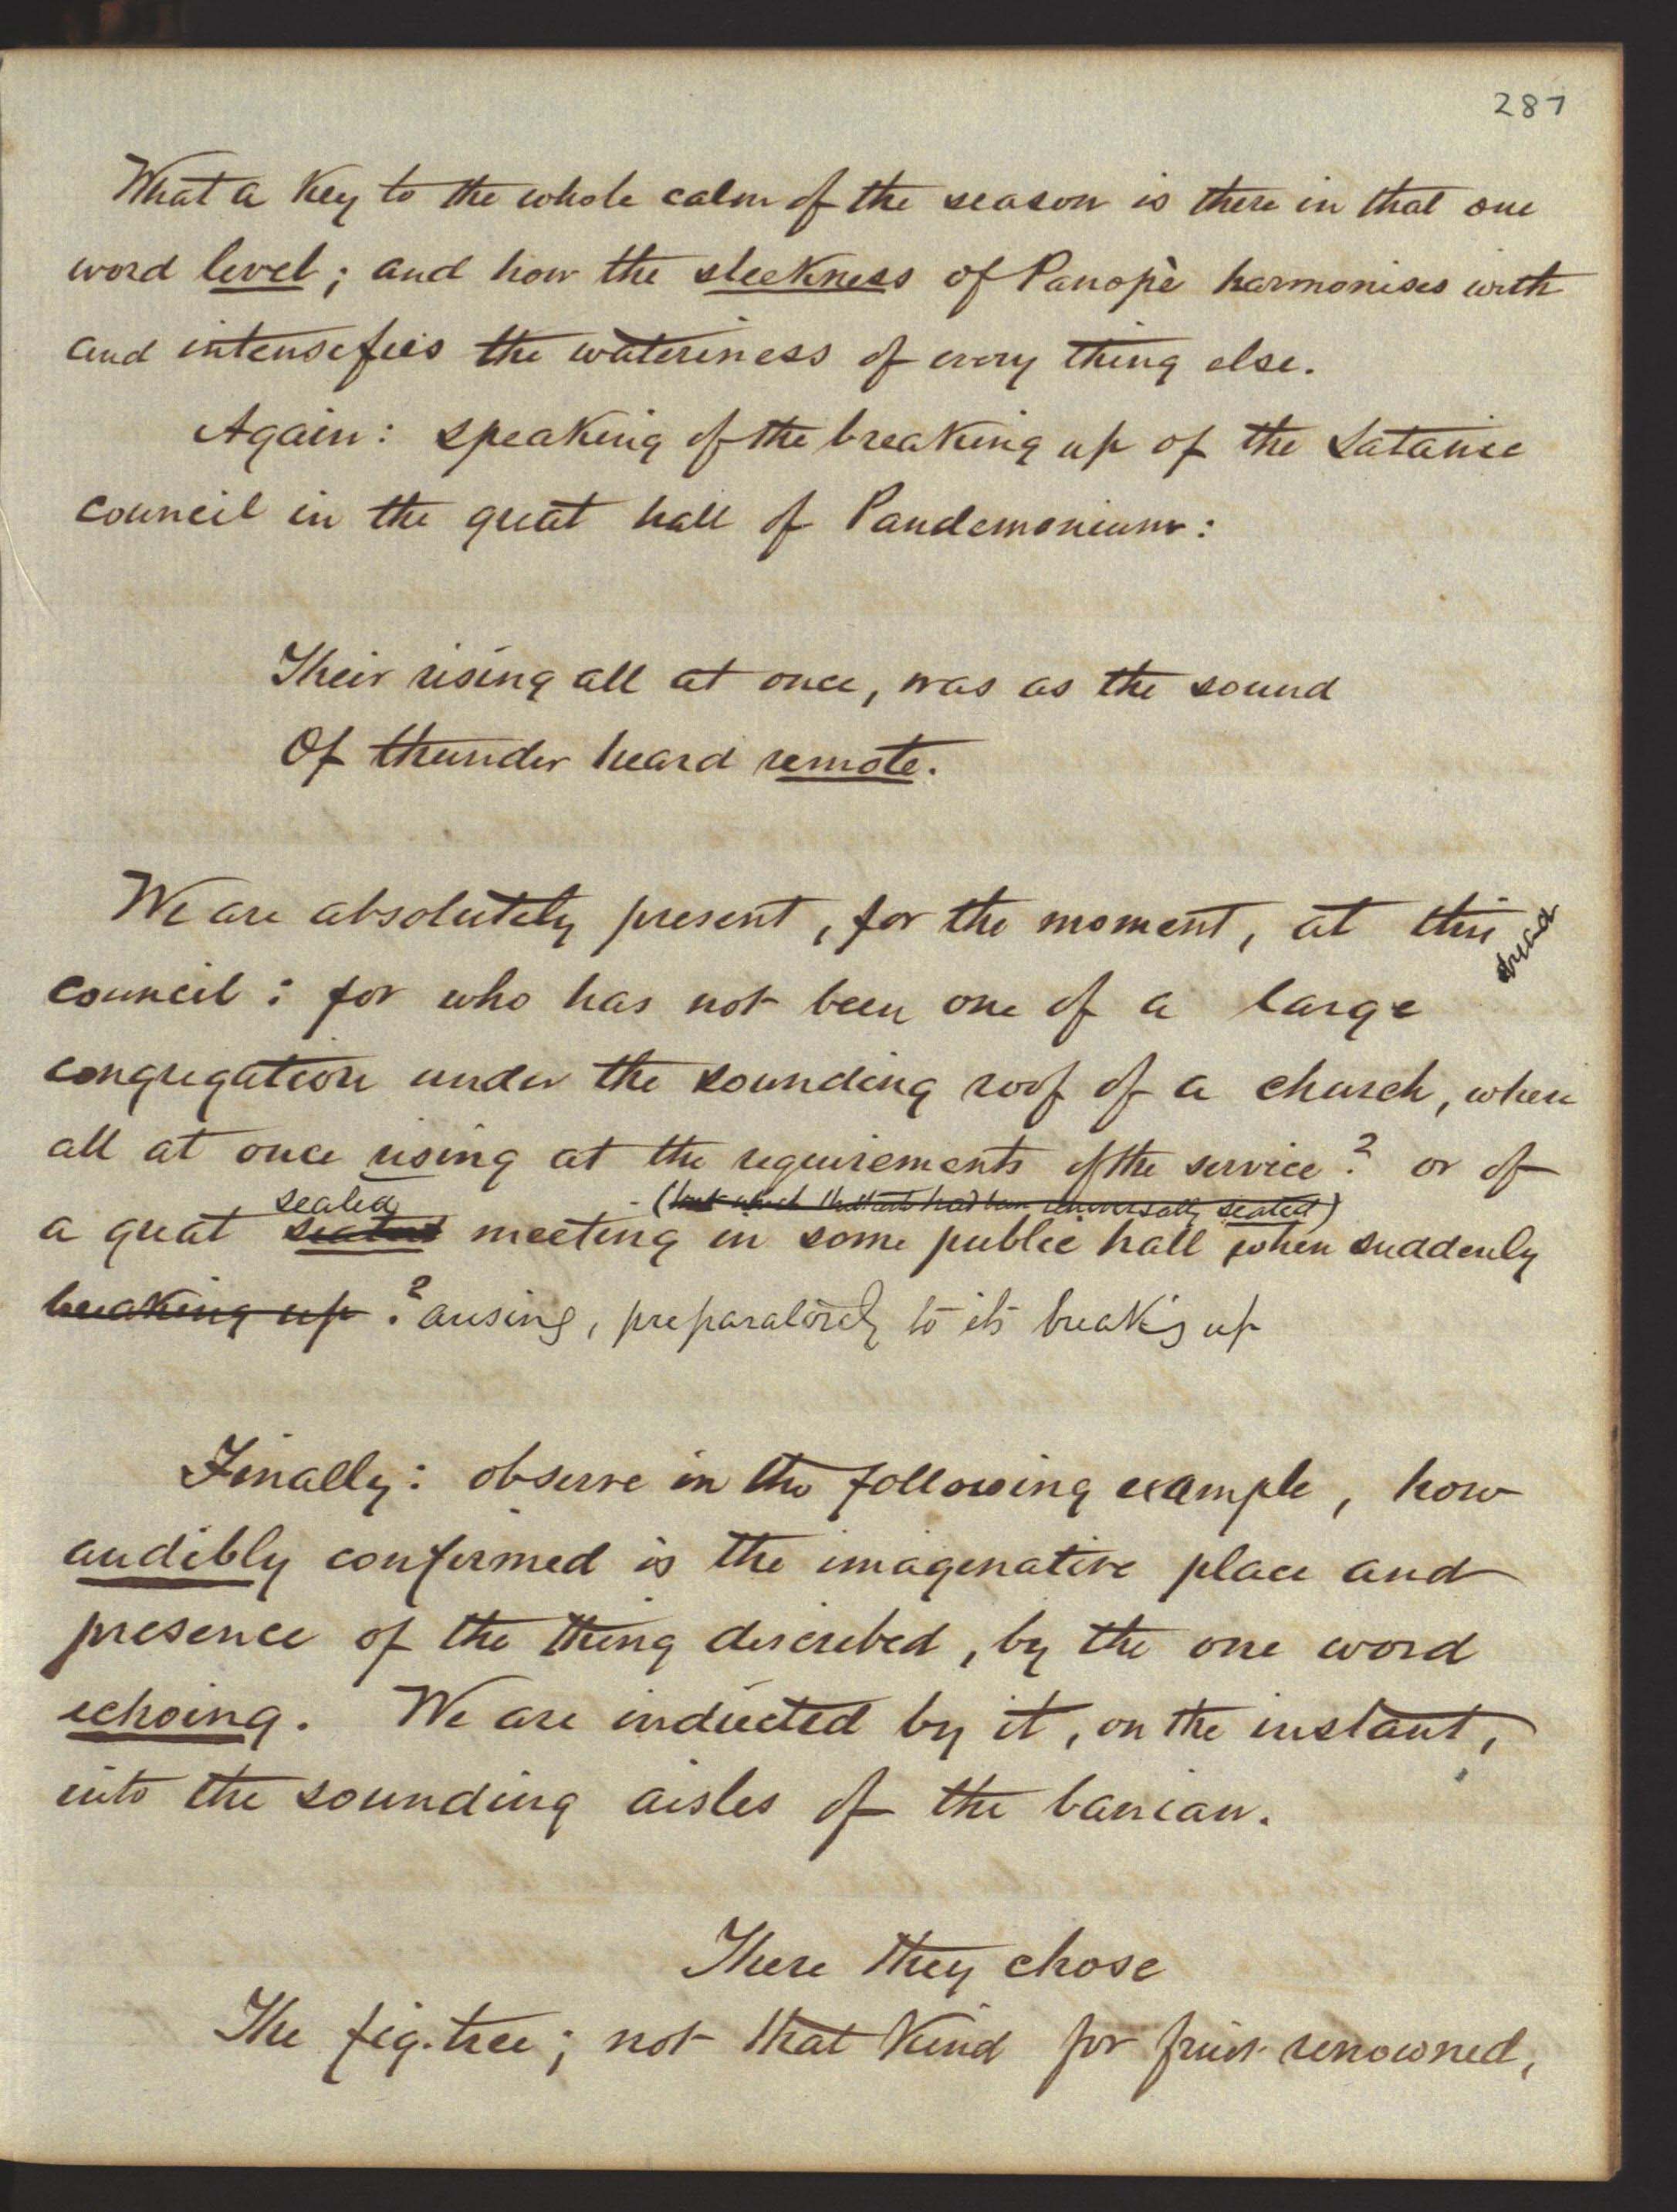 287
What a key to the whole calm of the season is there in that one
word level; and how the sleekness of Panopè harmonises with
and intensefies the wateriness of every thing else.
Again: speaking of the breaking up of the Satanic
council in the great hall of Pandemonium:
Their rising all at once, was as the sound
Of thunder heard remote.
We are absolutely present, for the moment, at this dread
council: for who has not been one of a large
congregation under the sounding roof of a church, when
all at once rising at the requirements of the service? or of
seated (but which had been universally seated)
a great seated meeting in some public hall when suddenly
breaking up? arising, preparatorily to its breaking up
Finally: observe in the following example, how
audibly confirmed is the imaginative place and
presence of the thing described, by the one word
echoing. We are inducted by it, on the instant,
into the sounding aisles of the banian.
There they chose
The fig-tree; not that kind for fruit renowned,